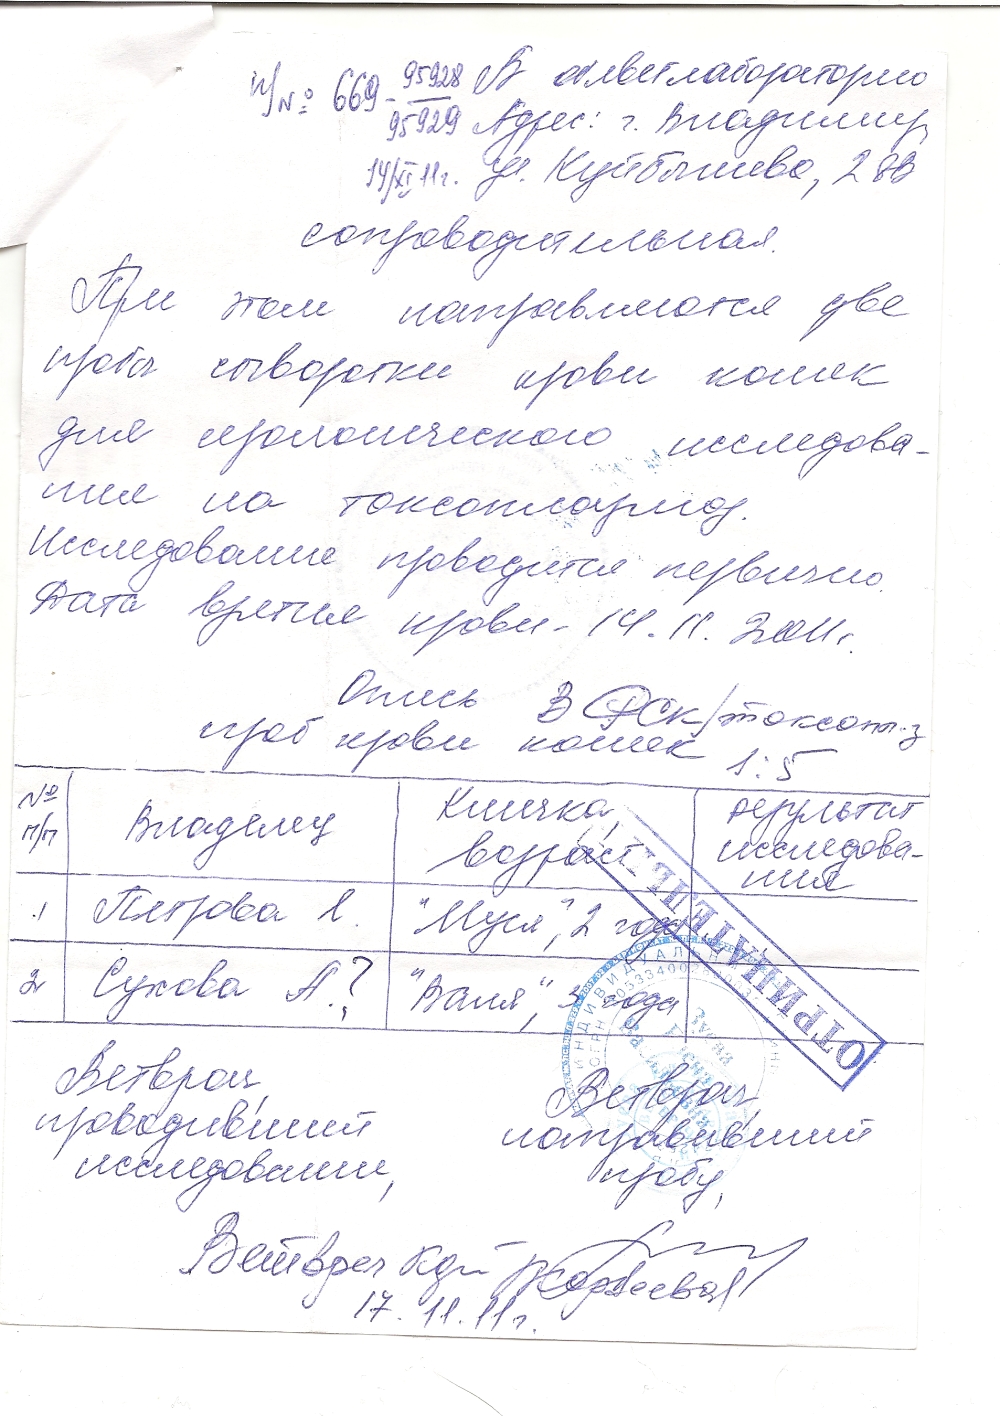 № 669 - 95928
95929
14/XI 11г.
В облветлабораторию
Адрес: г. Владимир,
ул. Куйбышева, 28В
сопроводительная.
При этом направляются две
пробы сыворотки крови кошек
для серологического исследова-
ния на токсоплазмоз.
Исследование проводится первично.
Дата взятия крови - 14.11.2011г.
Опись
проб крови кошек
В РСК/токсопл-з
1:5
№ п/п
Владелец
Кличка, возраст
Результат исследова-
ния
1
Петрова Л.
"Муся", 2 года
2
Сухова А.?
"Валя", 3 года
ОТРИЦАТЕЛЬН
Ветврач,
проводивший
исследование,
Ветврач,
направивший
пробу,
Ветврач
17.11.11г.